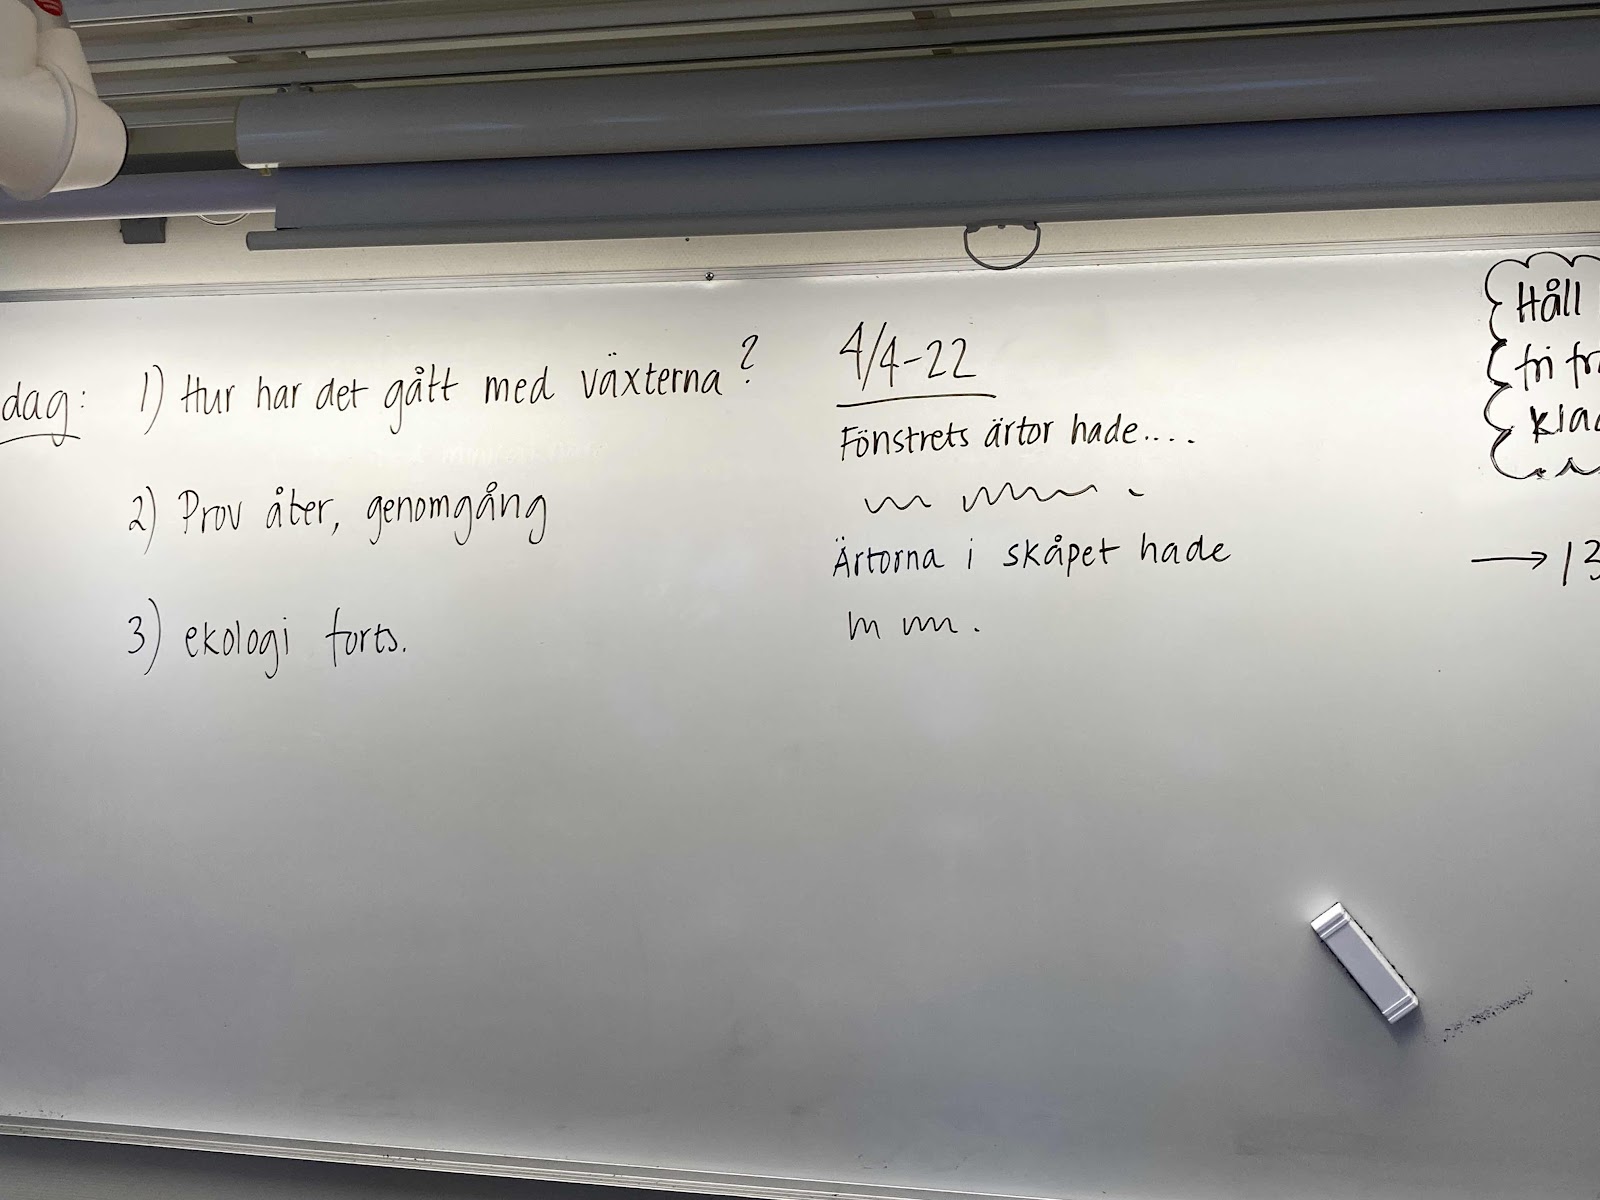 dag:
1) Hur har det gått med växterna?
2) Prov åter, genomgång
3) ekologi forts.
4/4-22
Fönstrets ärtor hade....
Ärtorna i skåpet hade
Håll
fri
→ 13